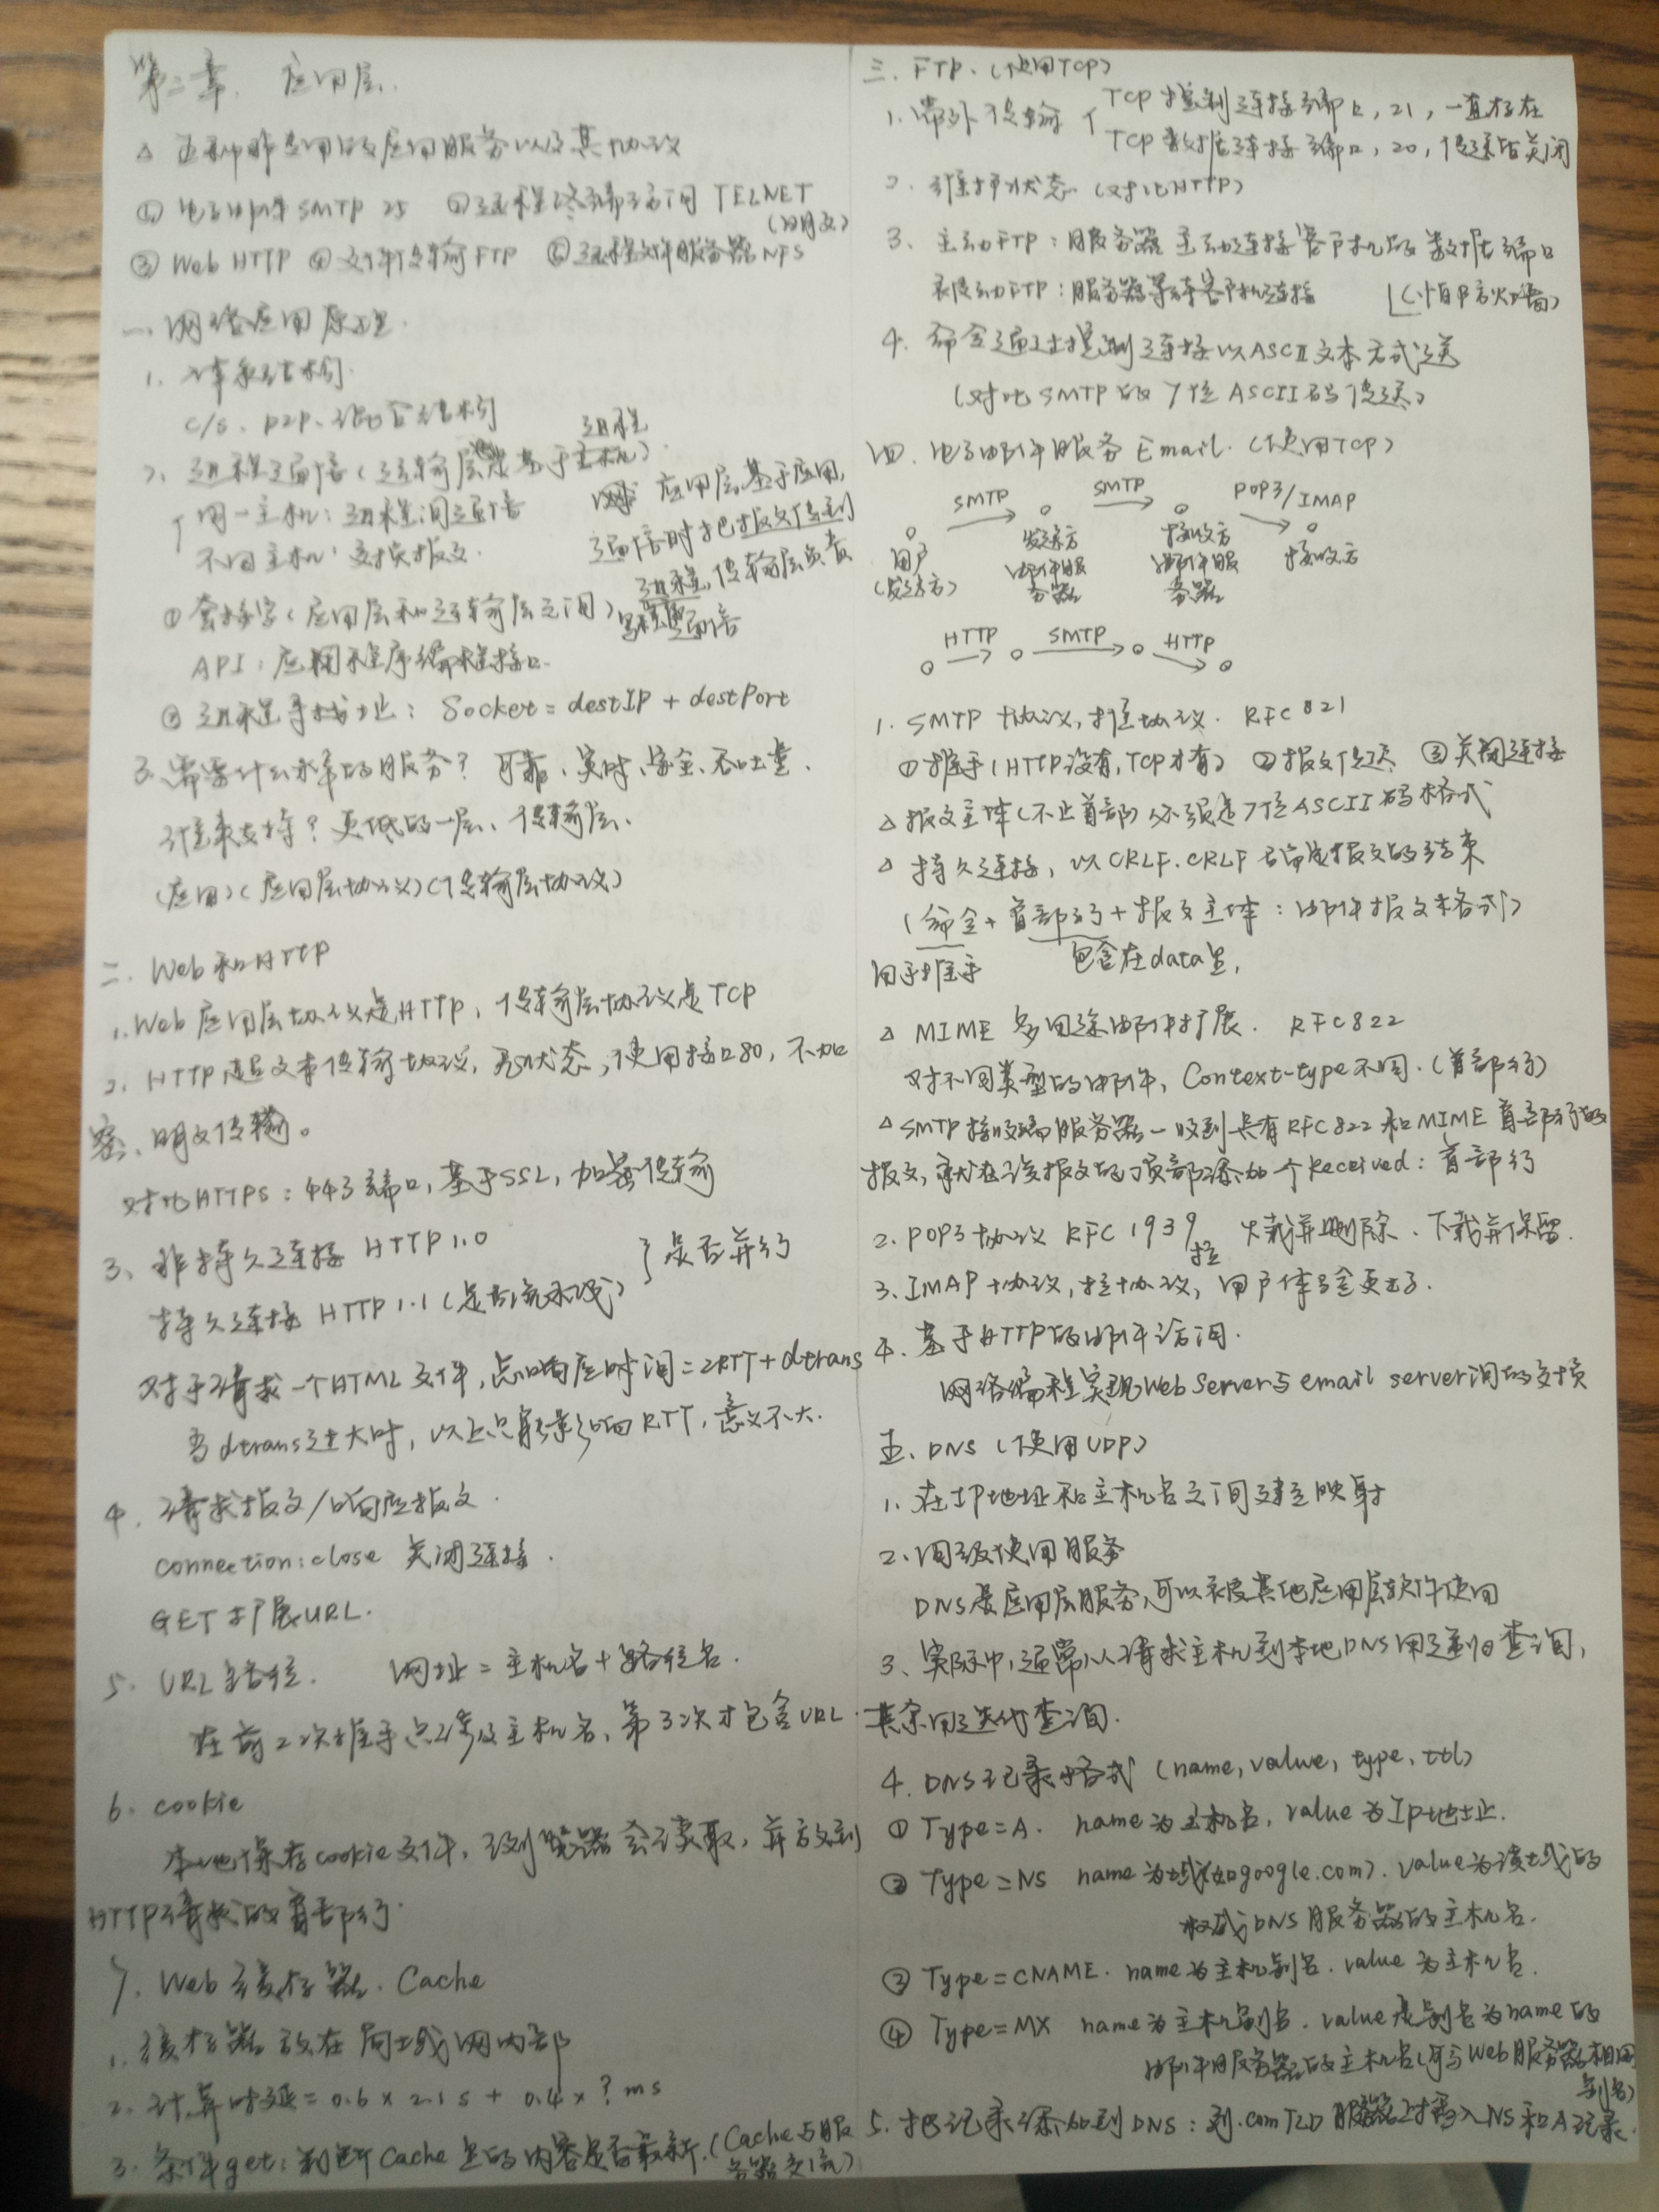 第二章. 应用层.
△ 五种常用的应用服务以及其协议
① 电子邮件 SMTP 25 ② 远程终端访问 TELNET
(明文)
③ Web HTTP ④ 文件传输 FTP ⑤ 远程文件服务器 NFS
一. 网络应用原理.
1. 体系结构.
C/S、P2P、混合结构
2. 进程通信 (运输层是基于主机).
进程
同一主机: 进程间通信
不同主机: 交换报文.
应用层基于应用,
通信时把报文传到
进程, 传输层负责
通信
① 套接字 (应用层和运输层之间)
API: 应用程序编程接口.
② 进程寻址: Socket = destIP + destPort
3. 需要什么水平的服务? 可靠、实时、安全、吞吐量.
谁来支持? 更低的一层、传输层.
(应用) (应用层协议) (传输层协议)
二. Web 和 HTTP
1. Web 应用层协议是HTTP, 传输层协议是 TCP
2. HTTP 超文本传输协议, 无状态, 使用接口80, 不加
密、明文传输。
对比HTTPS: 443端口, 基于SSL, 加密传输
3、非持久连接 HTTP 1.0
持久连接 HTTP 1.1 (是否流水线)
} 是否并行
对于请求一个HTML文件, 总响应时间 = 2RTT + dtrans
当dtrans过大时, 以上只能影响RTT, 意义不大.
4. 请求报文/响应报文.
connection: close 关闭连接.
GET 扩展URL.
5. URL 路径. 网址 = 主机名 + 路径名.
在前2次握手只涉及主机名, 第3次才包含URL.
6. cookie
本地保存cookie文件, 浏览器会读取, 并放到
HTTP请求的首部行.
7. Web 缓存器. Cache
1. 缓存器放在局域网内部
2. 计算时延 = 0.6 x 2.1 s + 0.4 x ? ms
3. 条件get: 判断Cache里的内容是否最新. (Cache与服
务器交流)
三. FTP. (使用TCP)
1. 带外传输 { TCP 控制连接端口, 21, 一直存在
TCP 数据连接端口, 20, 传送后关闭
2. 维护状态 (对比HTTP)
3. 主动FTP: 服务器主动连接客户机的数据端口
被动FTP: 服务器等待客户机连接 (怕防火墙)
4. 命令通过控制连接以ASCII文本方式送
(对比SMTP的 7位ASCII码传送)
四. 电子邮件服务 Email. (使用TCP)
SMTP SMTP POP3/IMAP
用户 发送方 接收方 接收方
(发送方) 邮件服 邮件服
务器 务器
HTTP SMTP HTTP
1. SMTP 协议, 推协议. RFC 821
① 握手 (HTTP没有, TCP才有) ② 报文传送 ③ 关闭连接
△ 报文主体 (不止首部) 必须是7位ASCII码格式
△ 持久连接, 以CRLF.CRLF 确定报文的结束
(命令 + 首部行 + 报文主体: 邮件报文格式)
用于握手 包含在data里,
△ MIME 多用途邮件扩展. RFC822
对不同类型的邮件, Context-type不同. (首部行)
△ SMTP接收端服务器一收到具有RFC822 和MIME首部行的
报文, 就在该报文的顶部添加一个Received: 首部行
2. POP3协议 RFC 1939 拉 下载并删除、下载并保留.
3. IMAP协议, 拉协议, 用户体验更好.
4. 基于HTTP的邮件访问.
网络编程实现Web Server与email server间的交换
五、DNS (使用UDP)
1. 在IP地址和主机名之间建立映射
2. 间接使用服务
DNS是应用层服务, 可以被其他应用层软件使用
3、实际中, 通常从请求主机到本地DNS用递归查询,
其余用迭代查询.
4. DNS记录格式 (name, value, type, ttl)
① Type=A. name为主机名, value为Ip地址.
② Type=NS name为域(如google.com). value为该域的
权威DNS服务器的主机名.
③ Type=CNAME. name为主机别名. value为主机名.
④ Type=MX name为主机别名. value是别名为name的
邮件服务器的主机名 (可与Web服务器相同
别名)
5. 把记录添加到DNS: 到.com TLD服务器上插入NS和A记录.